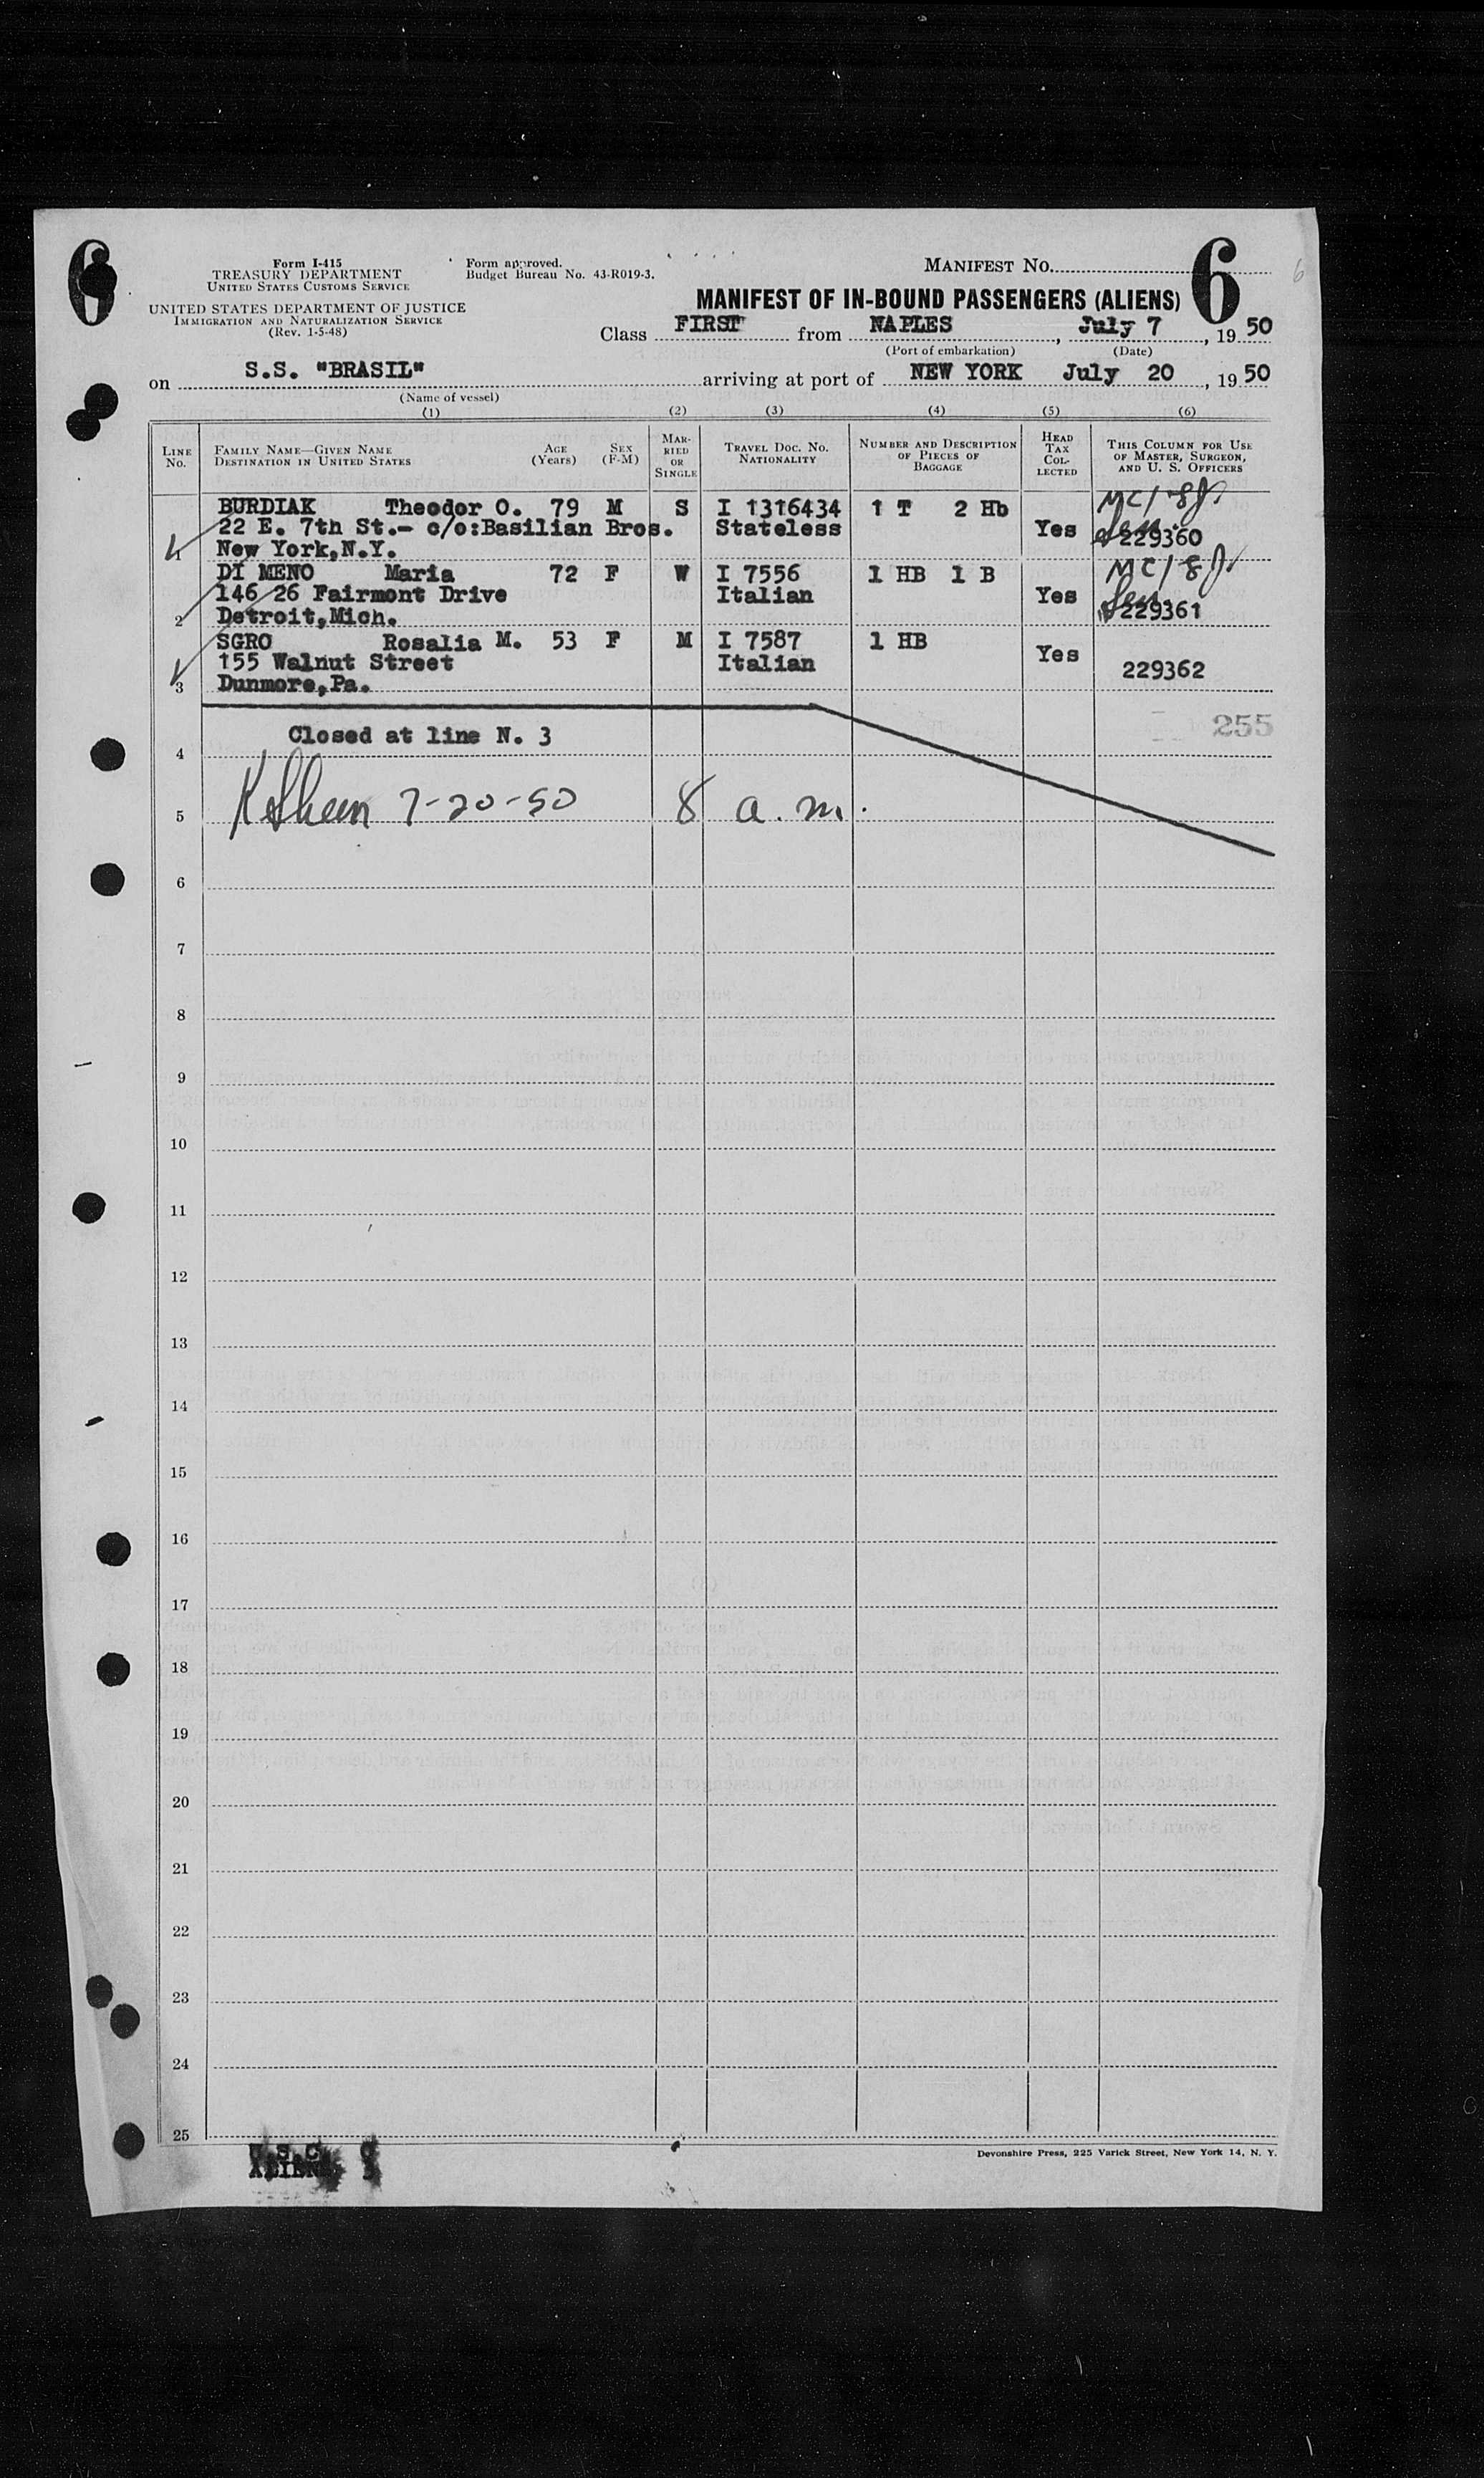 6
Form I-415
TREASURY DEPARTMENT
UNITED STATES CUSTOMS SERVICE
UNITED STATES DEPARTMENT OF JUSTICE
IMMIGRATION AND NATURALIZATION SERVICE
(Rev. 1-5-48)
Form approved.
Budget Bureau No. 43-R019-3.
MANIFEST No.
6
6
MANIFEST OF IN-BOUND PASSENGERS (ALIENS)
Class FIRST from NAPLES, July 7, 19 50
(Port of embarkation) (Date)
on S.S. "BRASIL" arriving at port of NEW YORK July 20, 19 50
(Name of vessel)
(1) (2) (3) (4) (5) (6)
LINE No.
FAMILY NAME—GIVEN NAME
DESTINATION IN UNITED STATES
AGE (Years)
SEX (F-M)
MARRIED OR SINGLE
TRAVEL DOC. NO. NATIONALITY
NUMBER AND DESCRIPTION OF PIECES OF BAGGAGE
HEAD TAX COLLECTED
THIS COLUMN FOR USE OF MASTER, SURGEON, AND U. S. OFFICERS
BURDIAK Theodor O. 79 M S I 1316434 1 T 2 Hb
22 E. 7th St.- c/o:Basilian Bros. Stateless Yes 229360
1 New York,N.Y.
DI MENO Maria 72 F W I 7556 1 HB 1 B
146 26 Fairmont Drive Italian Yes 229361
2 Detroit,Mich.
SGRO Rosalia M. 53 F M I 7587 1 HB
155 Walnut Street Italian Yes 229362
3 Dunmore,Pa.
255
Closed at line N. 3
4
5 7-20-50 8 a.m.
6
7
8
9
10
11
12
13
14
15
16
17
18
19
20
21
22
23
24
25
Devonshire Press, 225 Varick Street, New York 14, N. Y.